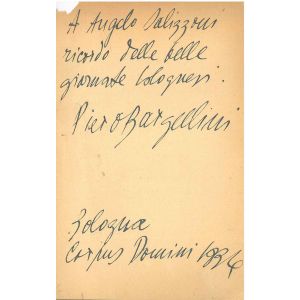 A Angelo Salizzoni
ricordo delle belle
giornate bolognesi.
Piero Bargellini
Bologna
Corpus Domini